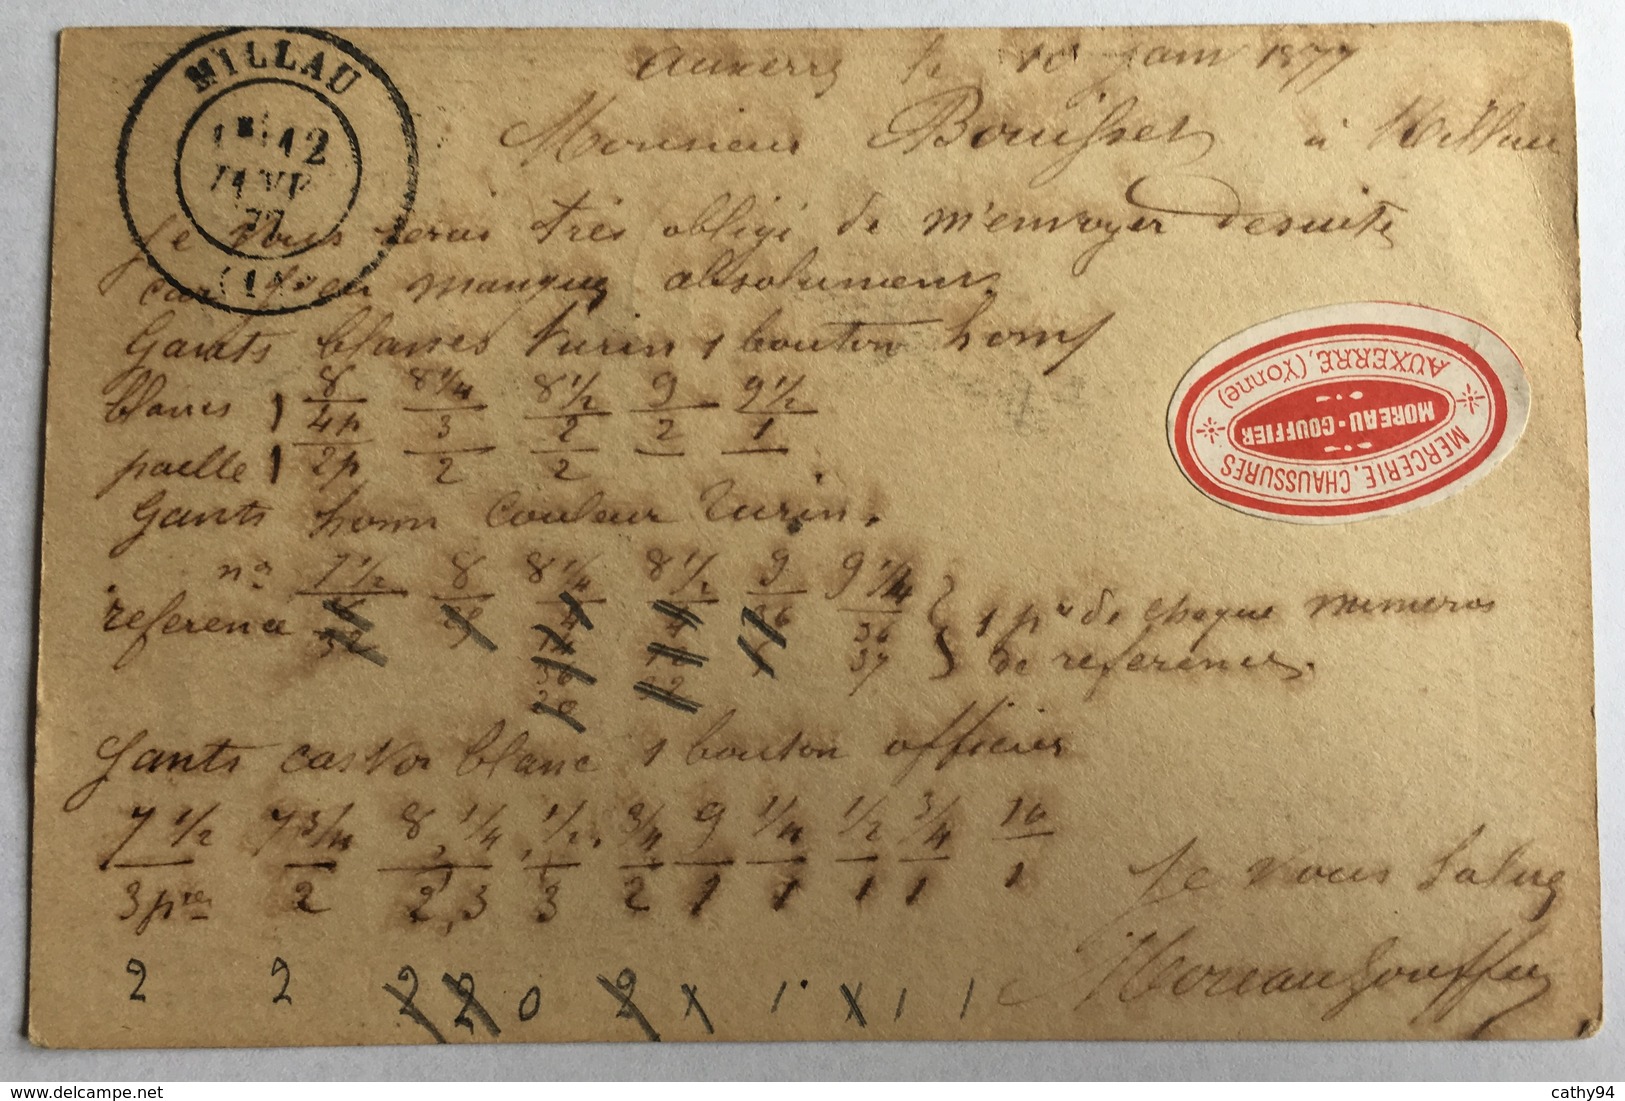 MILLAU
12
JANV
77
Auxerre le 10 Janv 1877
Monsieur Bouisset à Millau
Je vous serais très obligé de m'envoyer desuite
car j'en manque absolument.
Gants blancs turin 1 bouton hom
8 8 1/4 8 1/2 9 9 1/2
blancs 4p 3 2 2 1
paille 2p 2 2
Gants hom couleur turin.
no 7 1/2 8 8 1/4 8 1/2 9 9 1/4
reference 4 4 36 36 1 pre de chaque numeros
32 37 de reference.
36
Gants castor blanc 1 bouton officier
7 1/2 7 3/4 8, 1/4, 1/2, 3/4 9 1/4 1/2 3/4 10
3 pres 2 2, 3 3 2 1 1 1 1 1
Je vous salue
2 2 2 2 0 2 x 1 x 1 1
Moreau Gouffier
MERCERIE, CHAUSSURES
MOREAU-GOUFFIER
AUXERRE, (Yonne)
cathy94